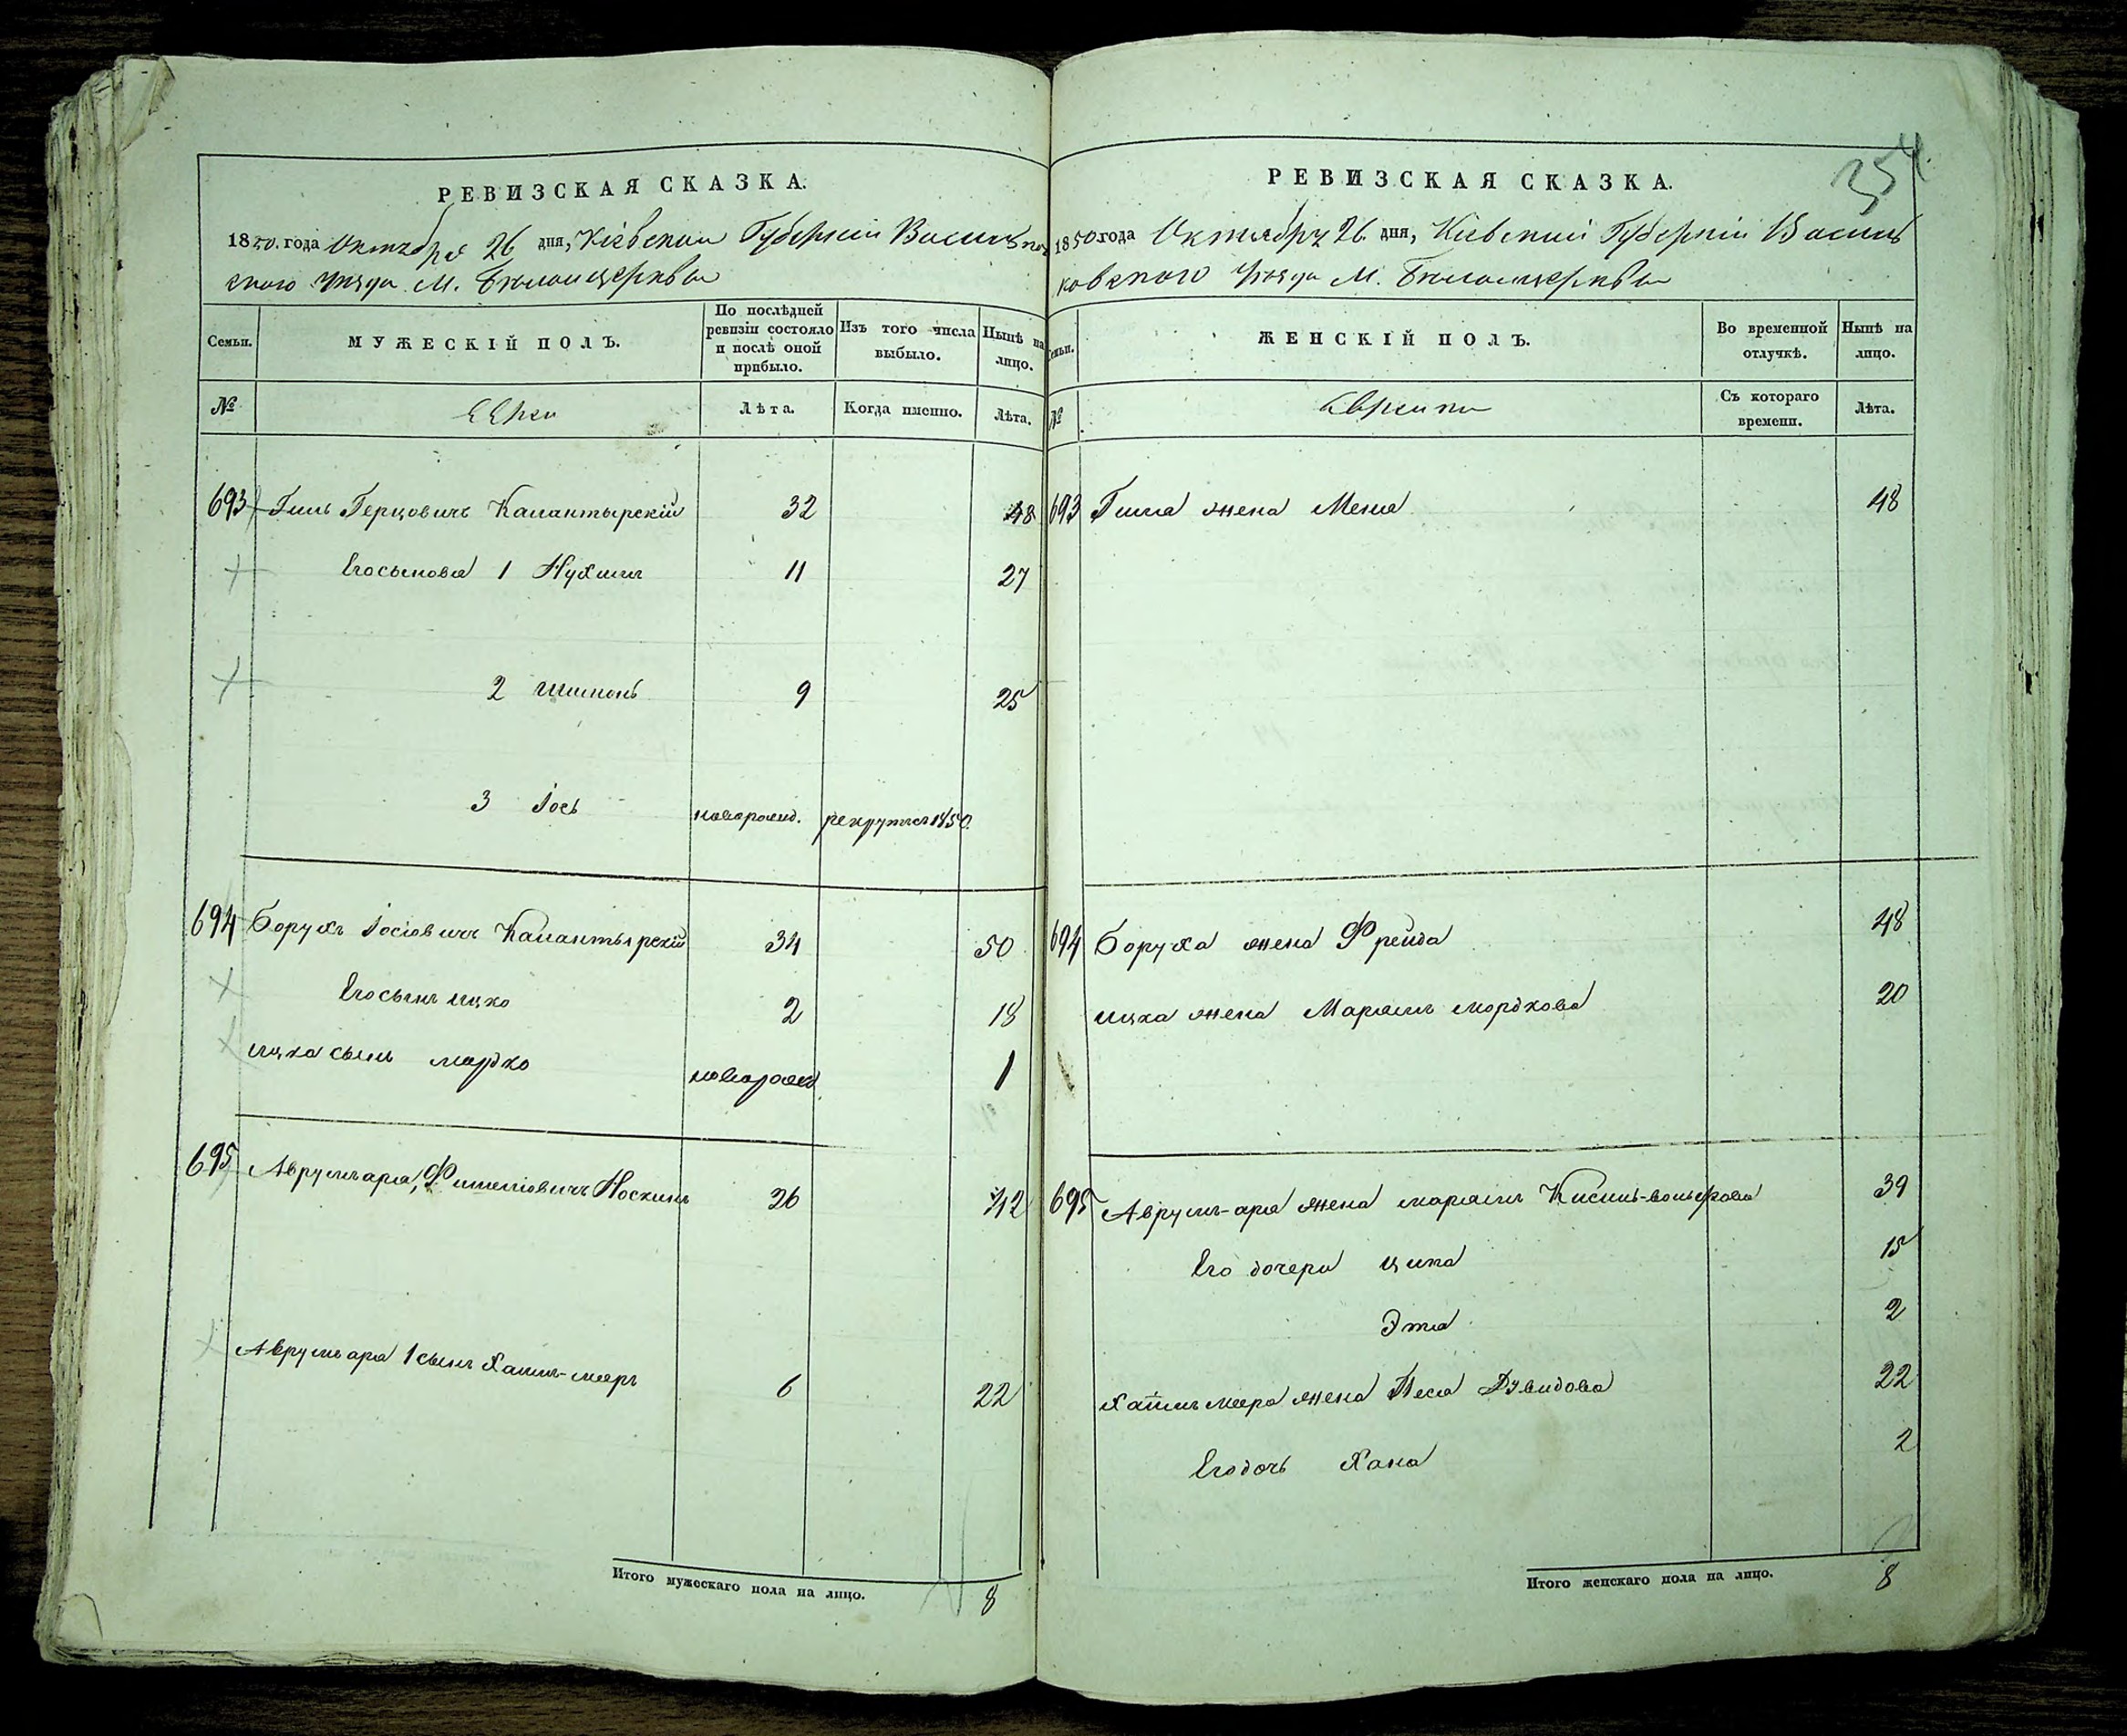 РЕВИЗСКАЯ СКАЗКА.
1850. года Октября 26 дня, Кіевской Губерніи Васильков
ского уезда М. Белой церкви
Семьи.
МУЖЕСКІЙ ПОЛЪ.
По послѣдней ревизіи состояло и послѣ оной прибыло.
Изъ того числа выбыло.
Нынѣ на лицо.
№
Евреи
Лѣта.
Когда именно.
Лѣта.
693 Гиль Герцовичъ Калантырскій 32 48
Его сыновья 1 Нухимъ 11 27
2 Шимонъ 9 25
3 Іось новорожд. рекрутъ 1850
694 Борухъ Іосіовичъ Калантырскій 34 50
Его сынъ ицко 2 18
ицка сынъ мордко новорожд. 1
695 Аврумъ ария, Фишеліовичъ Носкинъ 26 42
Аврумъ ария 1 сынъ Хаимъ-мееръ 6 22
Итого мужескаго пола на лицо. 8
354.
РЕВИЗСКАЯ СКАЗКА.
1850 года Октября 26 дня, Кіевской Губерніи Василь
ковского уезда М. Белой церкви
Семьи.
ЖЕНСКІЙ ПОЛЪ.
Во временной отлучкѣ.
Нынѣ на лицо.
№
Еврейки
Съ котораго времени.
Лѣта.
693 Гиля жена Меня 48
694 Боруха жена Фрейда 48
ицка жена Марьямъ мордкова 20
695 Аврумъ-ария жена марьямъ Кисиль-вольфова 39
Его дочери ципа 15
Этя 2
Хаимъ меера жена Песя Дувидова 22
Его дочь Хана 2
Итого женскаго пола на лицо. 8